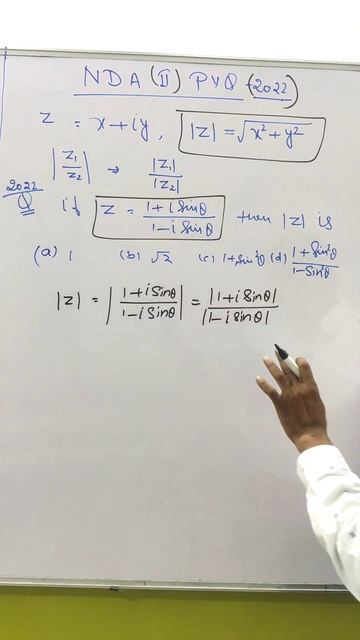 NDA (II) PYQ (2022)
Z = x+iy, |Z| = √x²+y²
|Z₁/Z₂| → |Z₁|/|Z₂|
2022 Q if Z = 1+i Sinθ/1-i Sinθ then |Z| is
(a) 1 (b) √2 (c) 1+Sin²θ (d) 1+Sin²θ/1-Sin²θ
|Z| = |1+i Sinθ/1-i Sinθ| = |1+i Sinθ|/|1-i Sinθ|